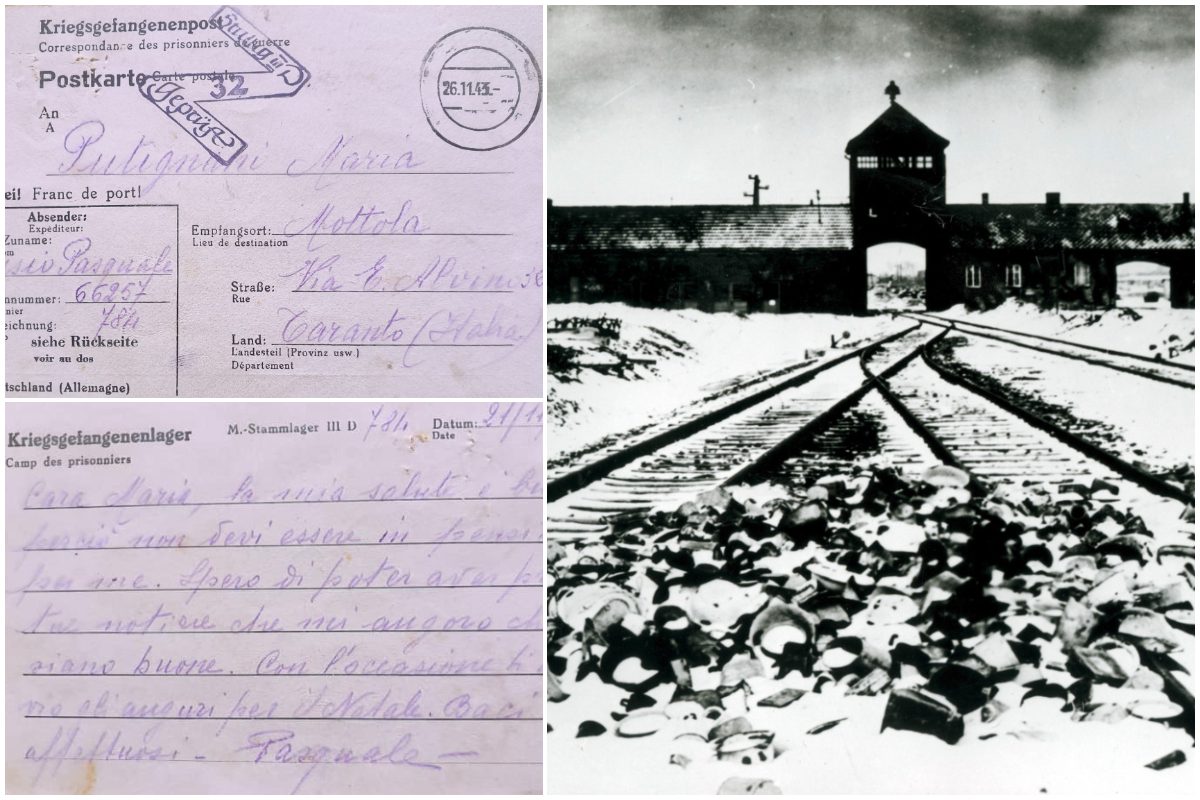 Kriegsgefangenenpost
Correspondance des prisonniers de guerre
Postkarte Carte postale
32
Geprüft
26.11.43.-
An
A
Putignani Maria
ei! Franc de port!
Absender:
Expéditeur:
Zuname:
Pasquale
nnummer: 66257
nier
eichnung: 784
siehe Rückseite
voir au dos
tschland (Allemagne)
Empfangsort: Mottola
Lieu de destination
Straße: Via E. Alvino
Rue
Land: Taranto (Italia)
Landesteil (Provinz usw.)
Département
Kriegsgefangenenlager
Camp des prisonniers
M.-Stammlager III D 784 Datum: 21/11
Date
Cara Maria, la mia salute è
perciò non devi essere in pensi
per me. Spero di poter aver
tue notizie che mi auguro ch
siano buone. Con l'occasione ti
gli auguri per il Natale. Baci
affettuosi - Pasquale -